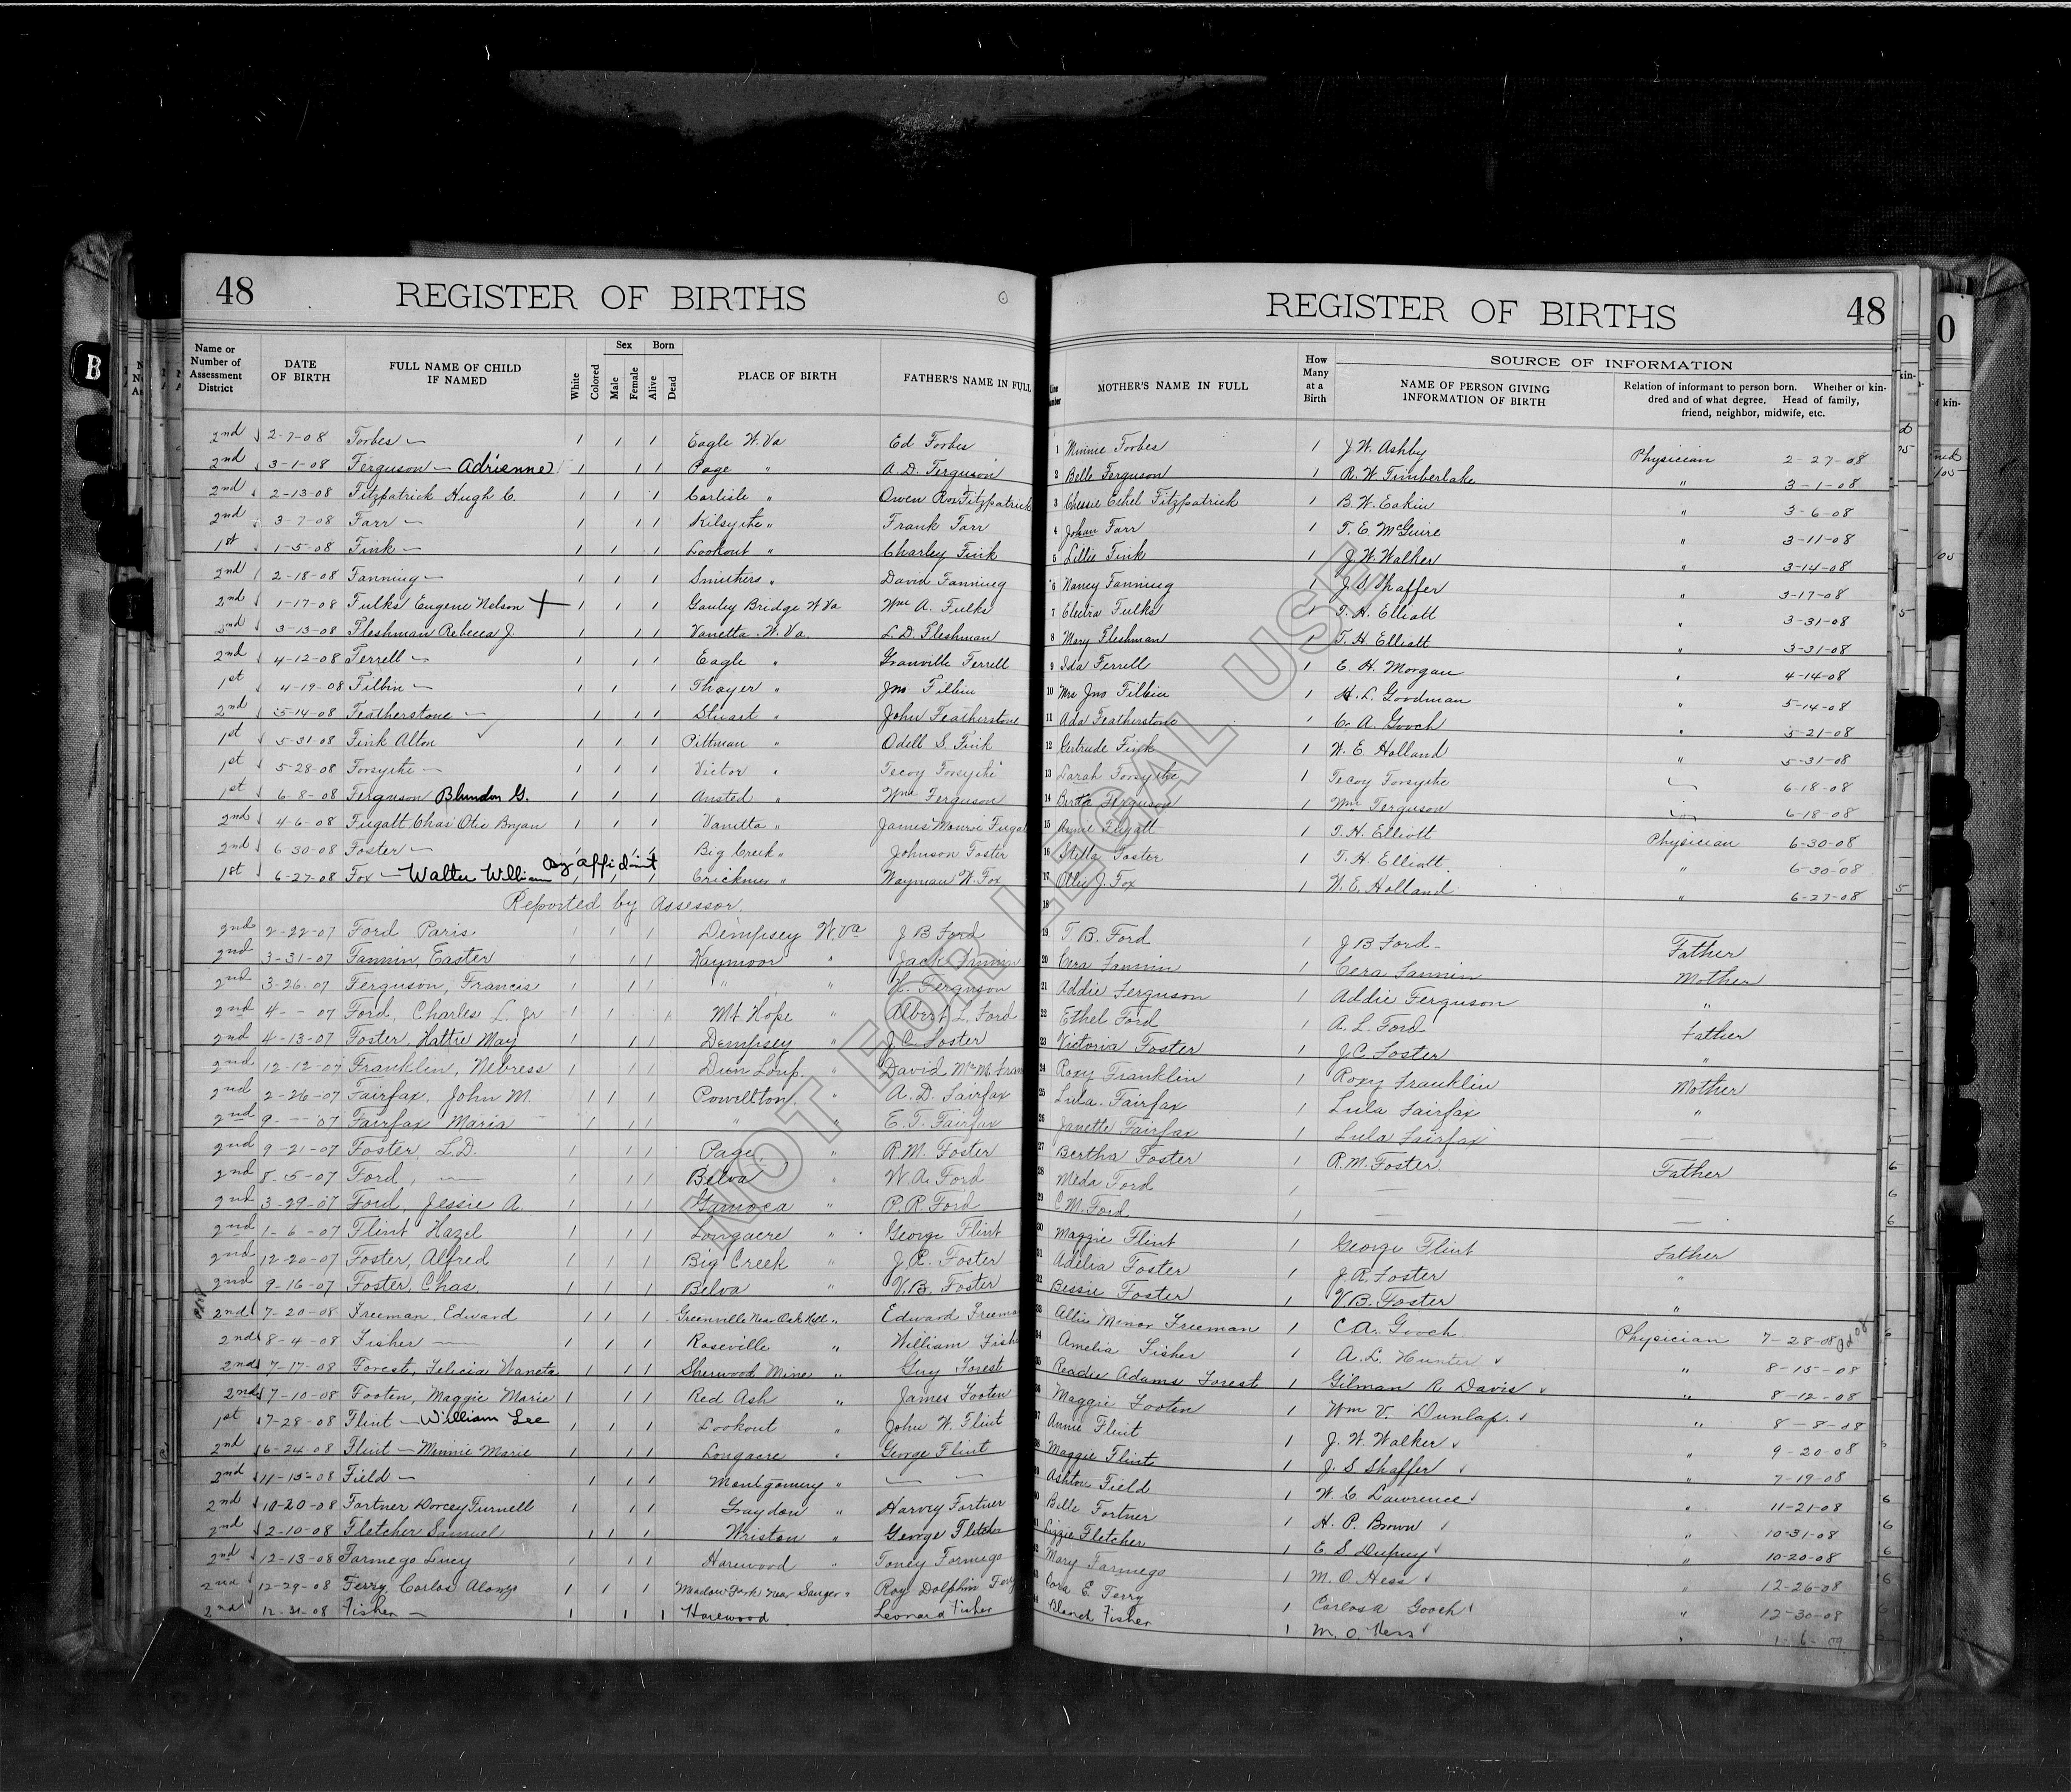 48 REGISTER OF BIRTHS
REGISTER OF BIRTHS 48
Name or Number of Assessment District | DATE OF BIRTH | FULL NAME OF CHILD IF NAMED | White | Colored | Sex Male Female | Born Alive Dead | PLACE OF BIRTH | FATHER'S NAME IN FULL | MOTHER'S NAME IN FULL | How Many at a Birth | SOURCE OF INFORMATION | NAME OF PERSON GIVING INFORMATION OF BIRTH | Relation of informant to person born. Whether of kindred and of what degree. Head of family, friend, neighbor, midwife, etc.
2nd 2-7-08 Forbes — 1 1 1 Eagle W. Va Ed Forbes 1 Minnie Forbes 1 J. W. Ashby Physician 2-27-08
2nd 3-1-08 Ferguson — Adrienne 1 1 1 Page " A. D. Ferguson 2 Belle Ferguson 1 R. W. Timberlake " 3-1-08
2nd 2-13-08 Fitzpatrick Hugh C. 1 1 1 Carlisle " Owen Roe Fitzpatrick 3 Chessie Ethel Fitzpatrick 1 B. W. Eakin " 3-6-08
2nd 3-7-08 Farr — 1 1 1 Kilsythe " Frank Farr 4 Farr 1 T. E. McGuire " 3-11-08
1st 1-5-08 Fink — 1 1 1 Lookout " Charley Fink 5 Lillie Fink 1 J. W. Walker " 3-14-08
2nd 2-18-08 Fanning — 1 1 1 Smithers " David Fanning 6 Nancy Fanning 1 J. S. Shaffer " 3-17-08
2nd 1-17-08 Fulks Eugene Nelson 1 1 1 Gauley Bridge W Va Wm A. Fulks 7 Electra Fulks 1 T. H. Elliott " 3-31-08
2nd 3-13-08 Fleshman Rebecca J. 1 1 1 Vanetta W. Va. L. D. Fleshman 8 Mary Fleshman 1 T. H. Elliott " 3-31-08
2nd 4-12-08 Ferrell — 1 1 1 Eagle " Granville Ferrell 9 Ida Ferrell 1 E. H. Morgan " 4-14-08
1st 4-19-08 Filbin — 1 1 1 Thayer " Jno Filbin 10 Mrs Jno Filbin 1 H. L. Goodman " 5-14-08
2nd 5-14-08 Featherstone — 1 1 1 Stuart " John Featherstone 11 Ada Featherstone 1 C. A. Gooch " 5-21-08
1st 5-31-08 Fink Alton 1 1 1 Pittman " Odell S. Fink 12 Gertrude Fink 1 W. E. Holland " 5-31-08
1st 5-28-08 Forsythe — 1 1 1 Victor " Tecoy Forsythe 13 Sarah Forsythe 1 Tecoy Forsythe 6-18-08
1st 6-8-08 Ferguson Blundon G. 1 1 1 Ansted " Wm Ferguson 14 Berta Ferguson 1 Wm Ferguson 6-18-08
2nd 4-6-08 Fugatt Chas Otis Bryan 1 1 1 Vanetta " James Monroe Fugatt 15 Annie Fugatt 1 T. H. Elliott Physician 6-30-08
2nd 6-30-08 Foster — 1 1 1 Big Creek " Johnson Foster 16 Stella Foster 1 T. H. Elliott " 6-30-08
1st 6-27-08 Fox — Walter William By affidavit 1 1 1 Crickmer " Wayman W. Fox 17 Ollie J. Fox 1 W. E. Holland " 6-27-08
Reported by Assessor. 18
2nd 2-22-07 Ford Paris 1 1 1 Dempsey W. Va J B Ford 19 T. B. Ford 1 J B Ford Father
2nd 3-31-07 Fannin, Easter 1 1 1 Kaymoor " Jack Fannin 20 Cera Fannin 1 Cera Fannin Mother
2nd 3-26-07 Ferguson, Francis 1 1 1 " " H. Ferguson 21 Addie Ferguson 1 Addie Ferguson "
2nd 4- - 07 Ford, Charles L. Jr 1 1 1 Mt Hope " Albert L. Ford 22 Ethel Ford 1 A. L. Ford Father
2nd 4-13-07 Foster, Hattie May 1 1 1 Dempsey " J. C. Foster 23 Victoria Foster 1 J. C. Foster "
2nd 12-12-07 Franklin, Nebress 1 1 1 Dun Loup " David 24 Roxy Franklin 1 Roxy Franklin Mother
2nd 2-26-07 Fairfax, John M. 1 1 1 Powellton " A. D. Fairfax 25 Lula Fairfax 1 Lula Fairfax "
2nd 9- - 07 Fairfax Maria 1 1 1 " " E. T. Fairfax 26 Janette Fairfax 1 Lula Fairfax —
2nd 9-21-07 Foster, L.D. 1 1 1 Page " R. M. Foster 27 Bertha Foster 1 R. M. Foster Father
2nd 8-5-07 Ford, — 1 1 1 Belva " W. A. Ford 28 Meda Ford 1 — —
2nd 3-29-07 Ford, Jessie A. 1 1 1 Gamoca " P. R. Ford 29 C. M. Ford 1 — —
2nd 1-6-07 Flint Hazel 1 1 1 Longacre " George Flint 30 Maggie Flint 1 George Flint Father
2nd 12-20-07 Foster, Alfred 1 1 1 Big Creek " J. R. Foster 31 Adelia Foster 1 J. R. Foster "
2nd 9-16-07 Foster, Chas. 1 1 1 Belva " V. B. Foster 32 Bessie Foster 1 V. B. Foster "
2nd 7-20-08 Freeman, Edward 1 1 1 Greenville Near Oak Hill " Edward Freeman 33 Allie Minor Freeman 1 C. A. Gooch Physician 7-28-08
2nd 8-4-08 Fisher — 1 1 1 Roseville " William Fisher 34 Amelia Fisher 1 A. L. Hunter " 8-15-08
2nd 7-17-08 Forest, Felicia Waneta 1 1 1 Sherwood Mine " Guy Forest 35 Readie Adams Forest 1 Gilman R Davis " 8-12-08
2nd 7-10-08 Footen, Maggie Marie 1 1 1 Red Ash " James Footen 36 Maggie Footen 1 Wm V. Dunlap " 8-8-08
1st 7-28-08 Flint — William Lee 1 1 1 Lookout " John W. Flint 37 Annie Flint 1 J. W. Walker " 9-20-08
2nd 6-24-08 Flint — Minnie Marie 1 1 1 Longacre " George Flint 38 Maggie Flint 1 J. S Shaffer " 7-19-08
2nd 11-15-08 Field — 1 1 1 Montgomery " — — 39 Ashton Field 1 W. C. Lawrence " 11-21-08
2nd 10-20-08 Fortner Dorcey Turnell 1 1 1 Graydon " Harvey Fortner 40 Belle Fortner 1 H. P. Brown " 10-31-08
2nd 2-10-08 Fletcher Samuel 1 1 1 Wriston " George Fletcher 41 Lizzie Fletcher 1 E. S Dupuy " 10-20-08
2nd 12-13-08 Farmego Lucy 1 1 1 Harewood " Toney Farmego 42 Mary Farmego 1 M. O. Hess " 12-26-08
2nd 12-29-08 Ferry, Carlos Alonzo 1 1 1 Meadow Fork Near Sanger " Roy Dolphin Ferry 43 Cora E. Ferry 1 Carlos A Gooch " 12-30-08
2nd 12-31-08 Fisher — 1 1 1 Harewood Leonard Fisher 44 Blanch Fisher 1 M. O. Hess " 1-6-09
NOT FOR LEGAL USE